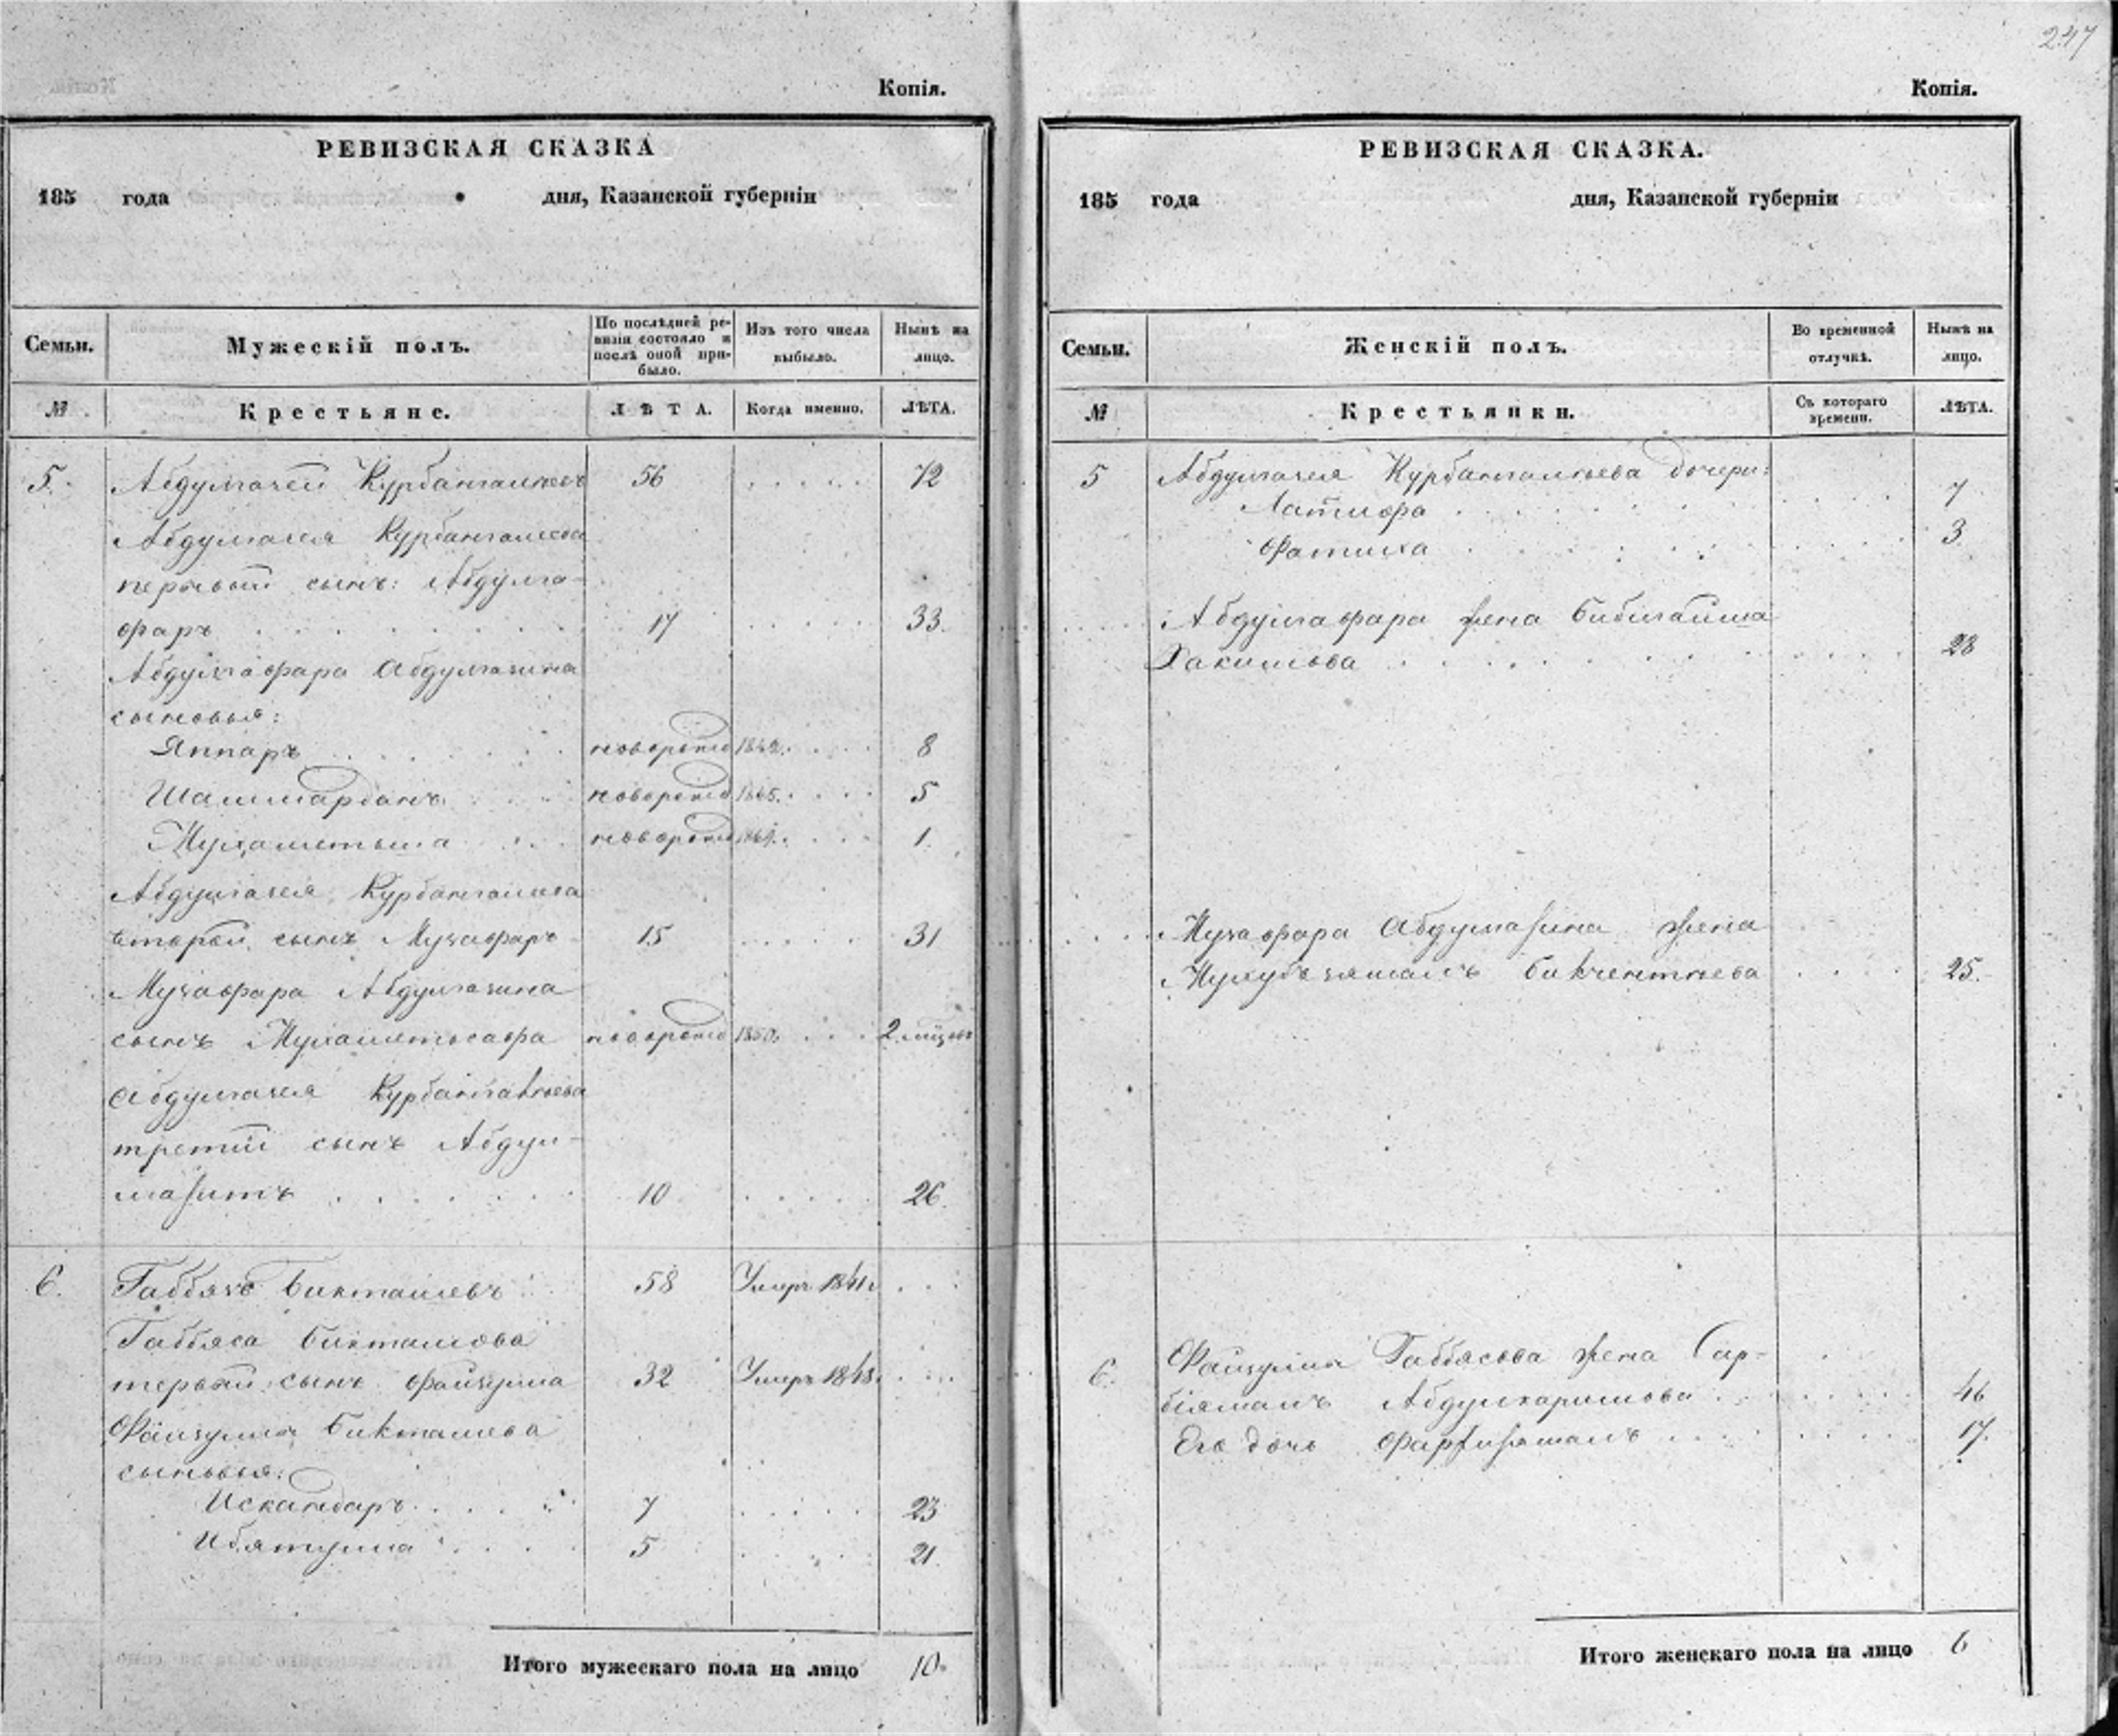 247
Копія.
РЕВИЗСКАЯ СКАЗКА
185 года дня, Казанской губерніи
Семьи.
Мужескій полъ.
По послѣдней ре-
визіи состояло и
послѣ оной при-
было.
Изъ того числа
выбыло.
Нынѣ на
лицо.
№
Крестьяне.
ЛѢТА.
Когда именно.
ЛѢТА.
5. Абдулгазей Курбангалеевъ 56 72
Абдулгазея Курбангалеева
первый сынъ: Абдулга-
фаръ 17 33.
Абдулгафара Абдулгазина
сыновья:
Яппаръ новорожд 1842. 8
Шаммарданъ новорожд 1845. 5
Мухаметша новорожд 1849. 1.
Абдулгазея Курбангалеева
второй сынъ Музафаръ 15 31
Музафара Абдулгазина
сынъ Мухаметьсафа новорожд 1850. 2 мѣсяц
Абдулгазея Курбангалеева
третій сынъ Абдул-
мазитъ 10 26
6. Габбясъ Бикташевъ 58 Умеръ 1841.
Габбяса Бикташева
первый сынъ Файзулла 32 Умеръ 1848.
Файзуллы Бикташева
сыновья:
Искандаръ 7 23
Ибятулла 5 21.
Итого мужескаго пола на лицо 10.
Копія.
РЕВИЗСКАЯ СКАЗКА.
185 года дня, Казанской губерніи
Семьи.
Женскій полъ.
Во временной
отлучкѣ.
Нынѣ на
лицо.
№
Крестьянки.
Съ котораго
времени.
ЛѢТА.
5 Абдулгазея Курбангалеева дочери:
Латифа 7
Фатиха 3
Абдулгафара жена Бибигайша
Хакимова 28
Музафара Абдулгазина жена
Бикчентеева 25.
6. Файзуллы Габбясова жена Сар-
біямалъ Абдулкаримова 46
Его дочь 17.
Итого женскаго пола на лицо 6